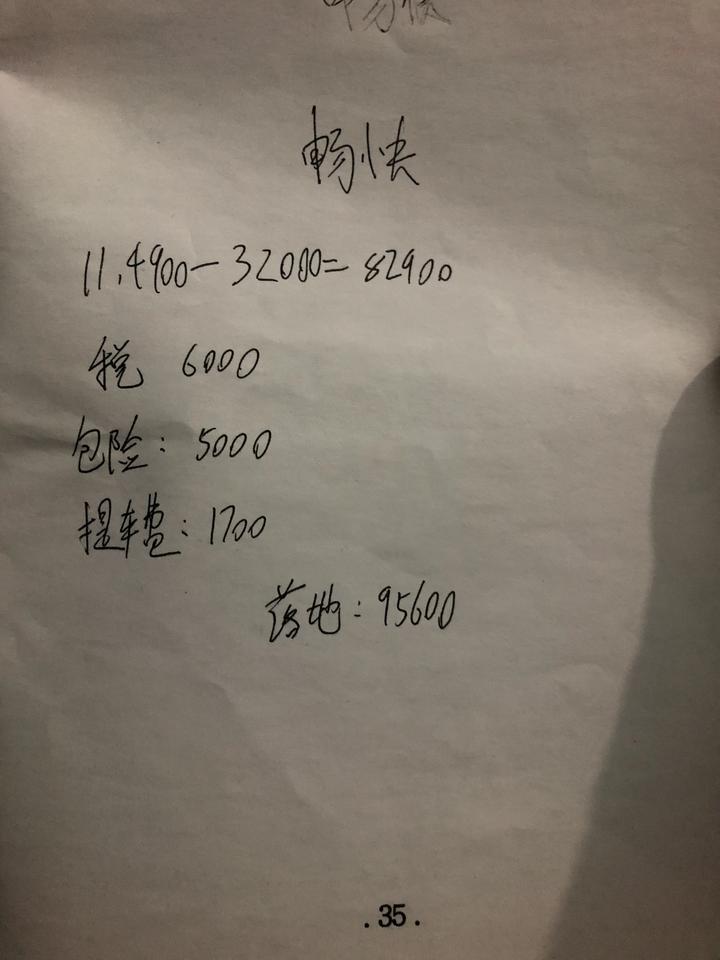 畅快
11.4900-32000=82900
税 6000
包险:5000
提车费:1700
落地:95600
.35.